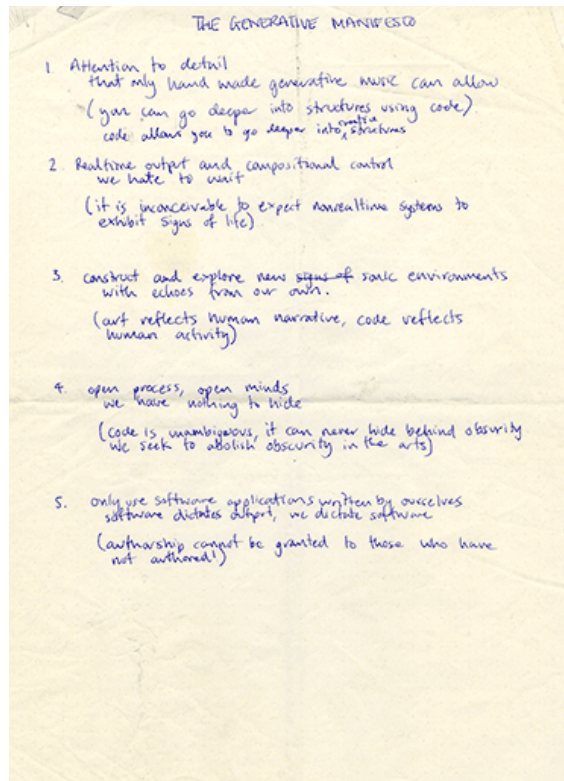 THE GENERATIVE MANIFESTO
1. Attention to detail
that only hand made generative music can allow
(you can go deeper into structures using code)
code allows you to go deeper into creative structures
2. Realtime output and compositional control
we hate to wait
(it is inconceivable to expect nonrealtime systems to
exhibit signs of life)
3. construct and explore new signs of sonic environments
with echoes from our own.
(art reflects human narrative, code reflects
human activity)
4. open process, open minds
we have nothing to hide
(code is unambiguous, it can never hide behind obsurity
we seek to abolish obscurity in the arts)
5. only use software applications written by ourselves
software dictates output, we dictate software
(authorship cannot be granted to those who have
not authored!)